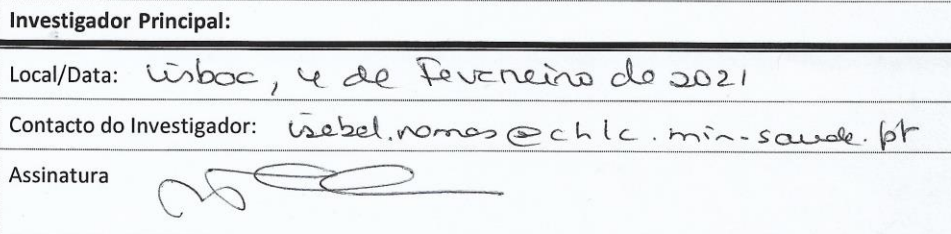 Investigador Principal:
Local/Data: Lisboa, 4 de Fevereiro de 2021
Contacto do Investigador: isabel.nomas@chlc.min-saude.pt
Assinatura